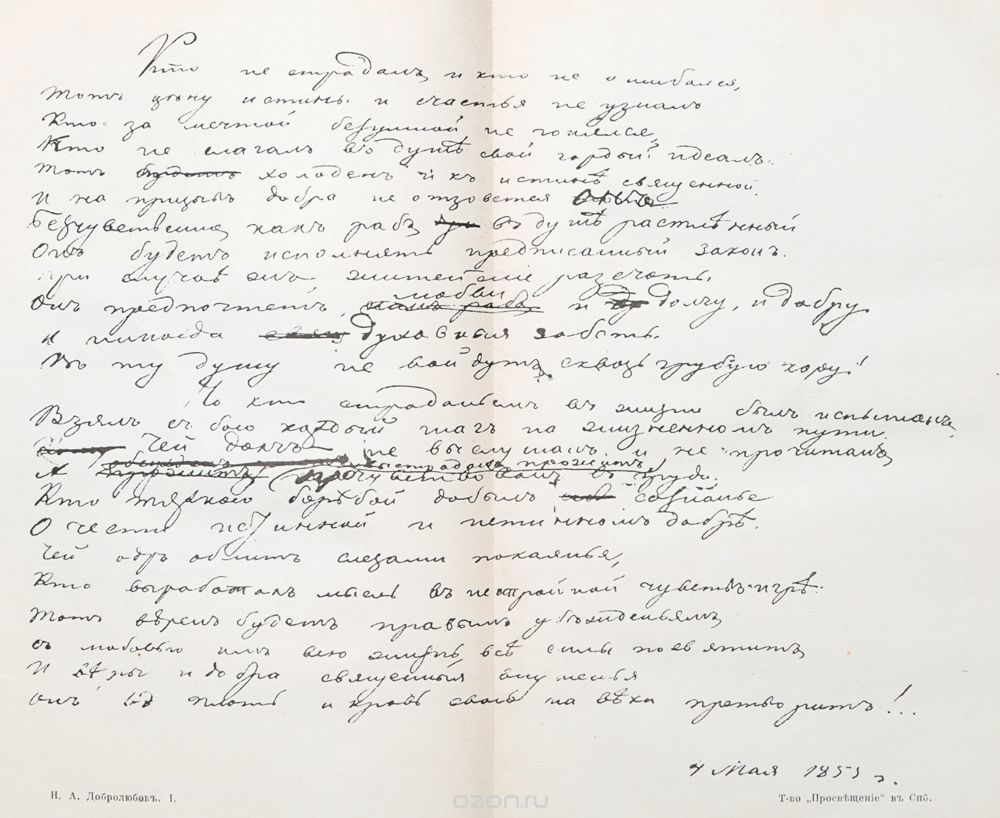 Кто не страдалъ и кто не ошибался,
Тотъ цѣну истины и счастья не узналъ
Кто за мечтой безумной не гонялся,
Кто не слагалъ въ душѣ свой гордый идеалъ.
Тотъ будетъ холоденъ и къ истинѣ священной
И на призывъ добра не отзовется
Безчувственно, какъ рабъ въ душѣ растлѣнный
Онъ будетъ исполнять предписанный законъ.
При случаѣ житейскіе разсчеты
Онъ предпочтетъ любви и долгу, и добру
И никогда духовныя заботы
Въ ту душу не войдутъ сквозь грубую кору!
Но кто страданьемъ въ жизни былъ испытанъ,
Взялъ съ бою каждый шагъ на жизненномъ пути
Чей долгъ не выслушанъ и не прочитанъ,
А прочувствованъ въ груди,
Кто тяжкою борьбой добылъ сознанье
О чести истинной и истинномъ добрѣ.
Чей одръ облитъ слезами покаянья,
Кто выработалъ мысль въ нестройной чувствъ игрѣ.
Тотъ вѣренъ будетъ правымъ убѣжденьямъ
Съ любовью имъ всю жизнь, всѣ силы посвятитъ
И вѣры и добра священныя внушенья
Онъ въ плоть и кровь свою на вѣки претворитъ!...
4 Мая 1855 г.
Н. А. Добролюбовъ. I.
Т-во „Просвѣщеніе“ въ Спб.
ozon.ru